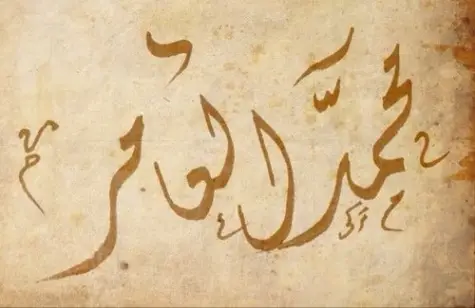 محمد العامر